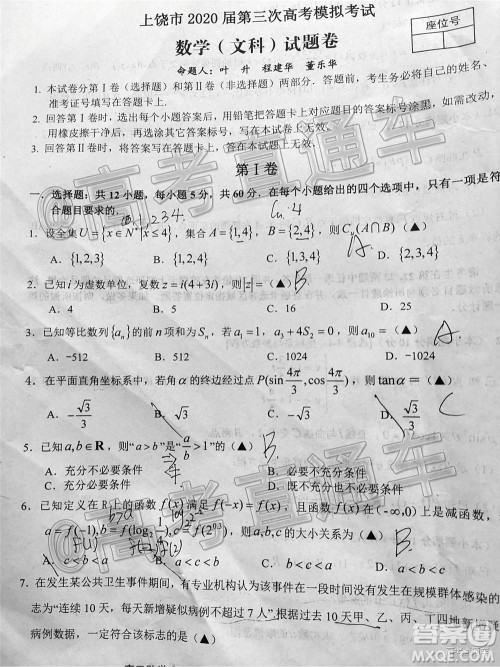 上饶市 2020 届第三次高考模拟考试
座位号
数学（文科）试题卷
命题人：叶 升 程建华 董乐华
1. 本试卷分第Ⅰ卷（选择题）和第Ⅱ卷（非选择题）两部分．答题前，考生务必将自己的姓名、
准考证号填写在答题卡上．
2. 回答第Ⅰ卷时，选出每个小题答案后，用铅笔把答题卡上对应题目的答案标号涂黑，如需改动，
用橡皮擦干净后，再选涂其它答案标号，写在本试卷上无效．
3. 回答第Ⅱ卷时，将答案写在答题卡上，写在本试卷上无效．
第Ⅰ卷
一．选择题：共 12 小题，每小题 5 分，共 60 分．在每个小题给出的四个选项中，只有一项是符
合题目要求的．
1．设全集U={x∈N*|x≤4}，集合A={1,4}，B={2,4}，则C_u(A∩B)=（▲）
A．{1,2,3} B．{1,2,4} C．{1,3,4} D．{2,3,4}
2．已知 i 为虚数单位，复数z=i(4+3i)，则|z|=（▲） B.
C．16 D．25
3．已知等比数列{a_n}的前 n 项和为S_n，若a_1=1，a_3+4S_2=0，则a_10=（▲） A.
A．-512 B．512 C．1024 D．-1024
4．在平面直角坐标系中，若角α的终边经过点P(sin 4π/3, cos 4π/3)，则tanα=（▲） C
A．-√3/3 B．-√3 C．√3/3 D．√3
5．已知a,b∈R，则“a>b”是“a/b>1”的（▲） B.
A．充分不必要条件 B．必要不充分条件
C．充要条件 D．既不充分也不必要条件
6．已知定义在 R 上的函数f(x)满足f(-x)=f(x)，且函数f(x)在(-∞,0)上是减函数，
B.
A．a<c<b C．b<c<a D．b<a<c
7．在发生某公共卫生事件期间，有专业机构认为该事件在一段时间没有发生在规模群体感染的标
志为“连续 10 天，每天新增疑似病例不超过 7 人”．根据过去 10 天甲、乙、丙、丁四地新增疑似
病例数据，一定符合该标志的是（▲）
高考直通车
高考直通车
答案圈